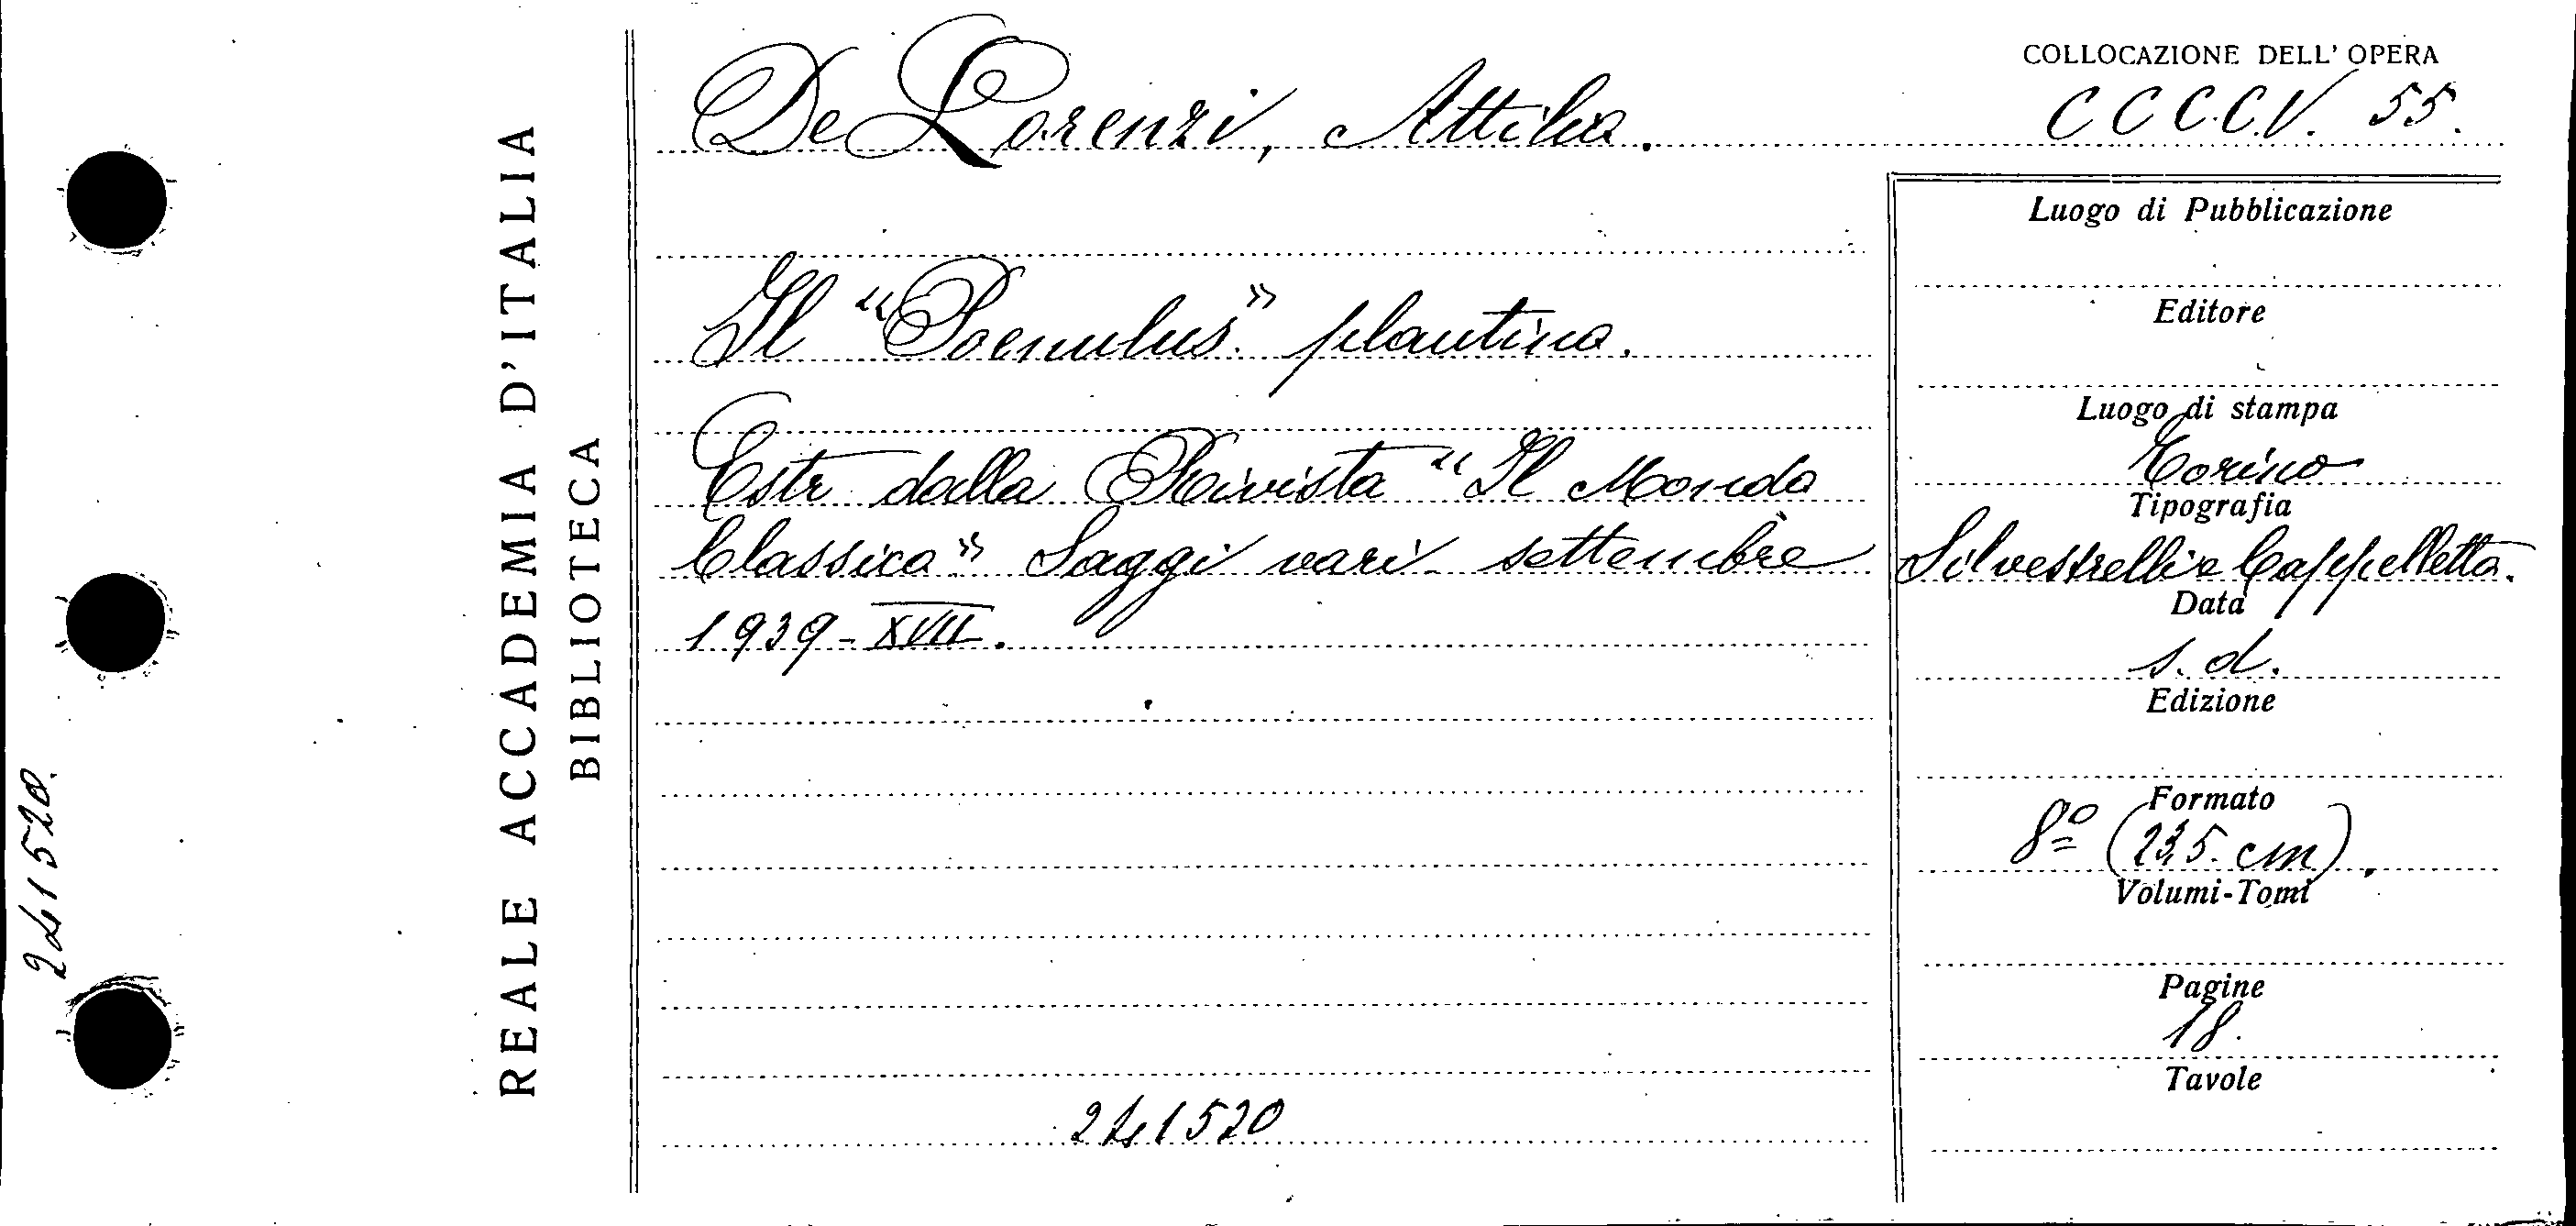 COLLOCAZIONE DELL' OPERA
De Lorenzi, Attilio.
C C C.C.V. 55.
Il "Poenulus" plautino.
Estr. dalla Rivista "Il Mondo
Classico" Saggi vari - settembre
1939-XVII.
241520
Luogo di Pubblicazione
Editore
Luogo di stampa
Torino
Tipografia
Silvestrelli e Cappelletto.
Data
s. d.
Edizione
Formato
8º (23,5. cm).
Volumi-Tomi
Pagine
18.
Tavole
REALE ACCADEMIA D'ITALIA
BIBLIOTECA
241520.